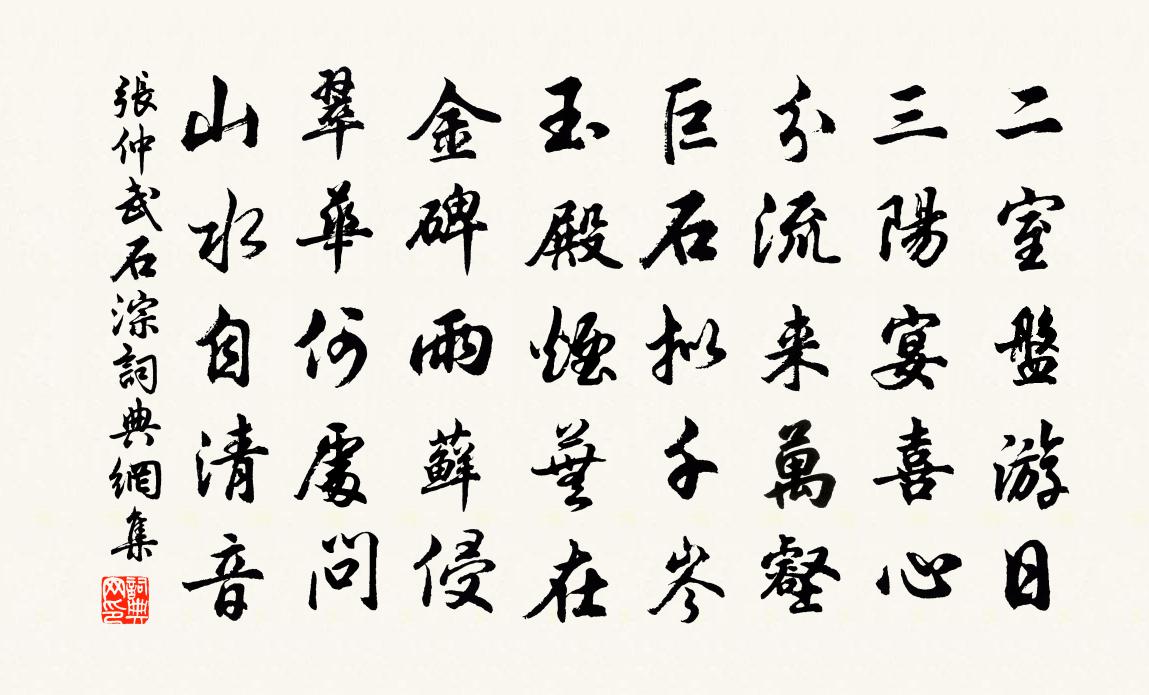 二室盤游日
三陽宴喜心
分流来萬壑
巨石拟千岑
玉殿煙蕪在
金碑雨蘚侵
翠華何處問
山水自清音
張仲武石淙詞典網集
詞典网印